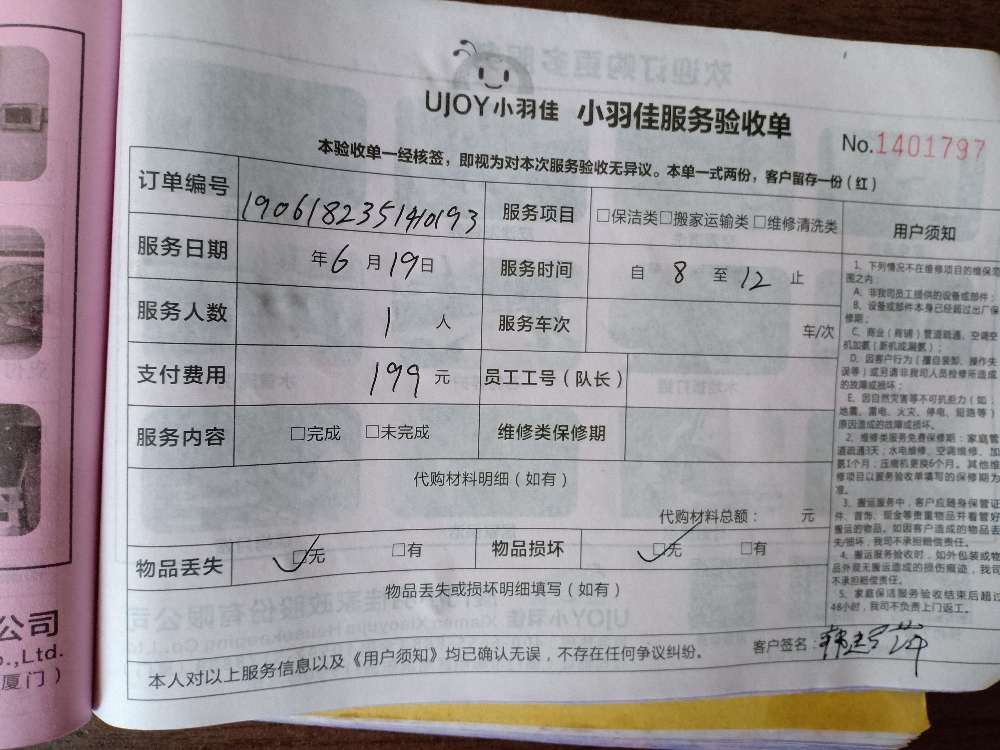 UJOY小羽佳 小羽佳服务验收单
No.1401797
本验收单一经核签，即视为对本次服务验收无异议。本单一式两份，客户留存一份（红）
订单编号 190618235140193 服务项目 □保洁类□搬家运输类 □维修清洗类
服务日期 年6月19日 服务时间 自 8 至 12 止
服务人数 1 人 服务车次 车/次
支付费用 199 元 员工工号（队长）
服务内容 □完成 □未完成 维修类保修期
代购材料明细（如有）
代购材料总额： 元
物品丢失 □无 □有 物品损坏 □无 □有
物品丢失或损坏明细填写（如有）
本人对以上服务信息以及《用户须知》均已确认无误，不存在任何争议纠纷。
客户签名：
用户须知
1、下列情况不在维修项目的维保范
围之内
A、非我司员工提供的设备或部件；
B、设备或部件本身已经超过出厂保
修期；
C、商业（商铺）管道疏通，空调空
机加氨（新机或漏氨）；
D、因客户行为（擅自装卸、操作失
误等）或另请非我司人员检修所造成
的故障或损坏；
E、因自然灾害等不可抗拒力（如：
地震、雷电、火灾、停电、短路等）
原因造成的故障或损坏。
2、维修类服务免费保修期：家庭管
道疏通3天；水电维修、空调维修、加
氨1个月；压缩机更换6个月。其他维
修项目以服务验收单填写的保修期为
准。
3、搬运服务中，客户应随身保管证
件、首饰、现金等贵重物品并看管好
搬运的物品。如因客户造成的物品丢
失/损坏，我司不承担赔偿责任。
4、搬运服务验收时，如外包装或物
品外观无搬运造成的损伤痕迹，我司
不承担赔偿责任。
5、家庭保洁服务验收结束后超过
48小时，我司不负责上门返工。
公司
o.,Ltd.
厦门）